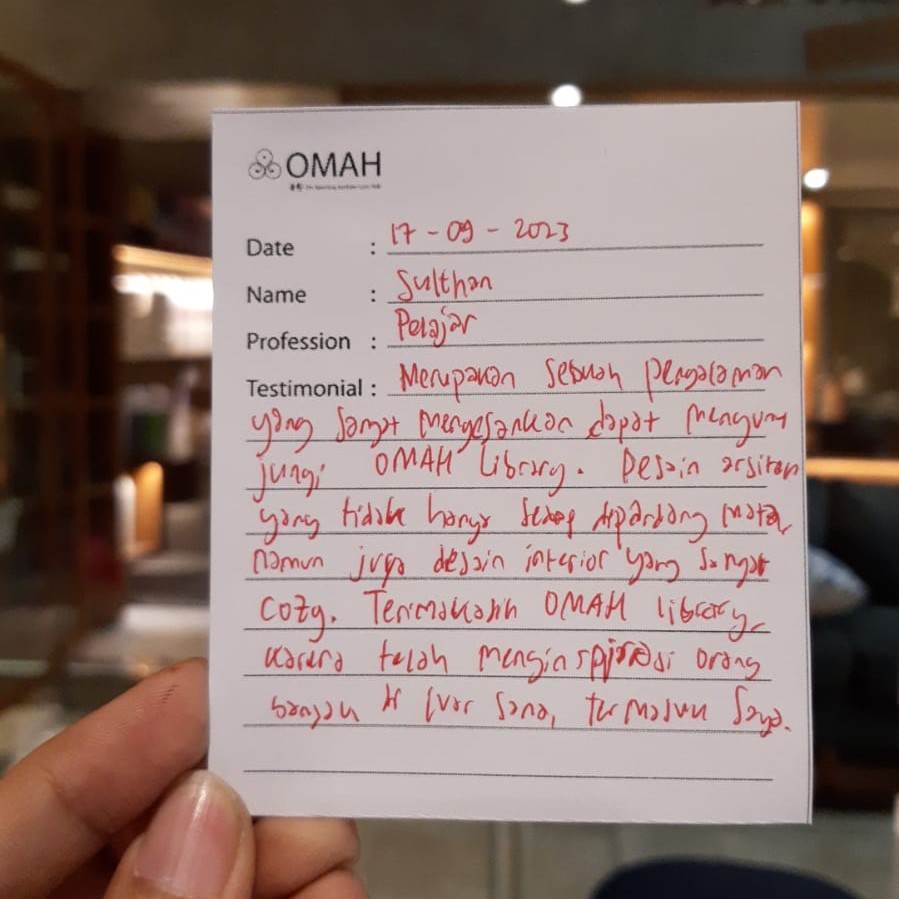 OMAH
Date : 17 - 09 - 2023
Name : Sulthan
Profession : Pelajar
Testimonial : Merupakan sebuah pengalaman
yang sangat mengesankan dapat mengun
jungi OMAH Library. Desain arsitek
yang tidak hanya sedap dipandang mata,
namun juga desain interior yang sangat
cozy. Terimakasih OMAH library,
karena telah menginspirasi orang
banyak di luar sana, termasuk saya.